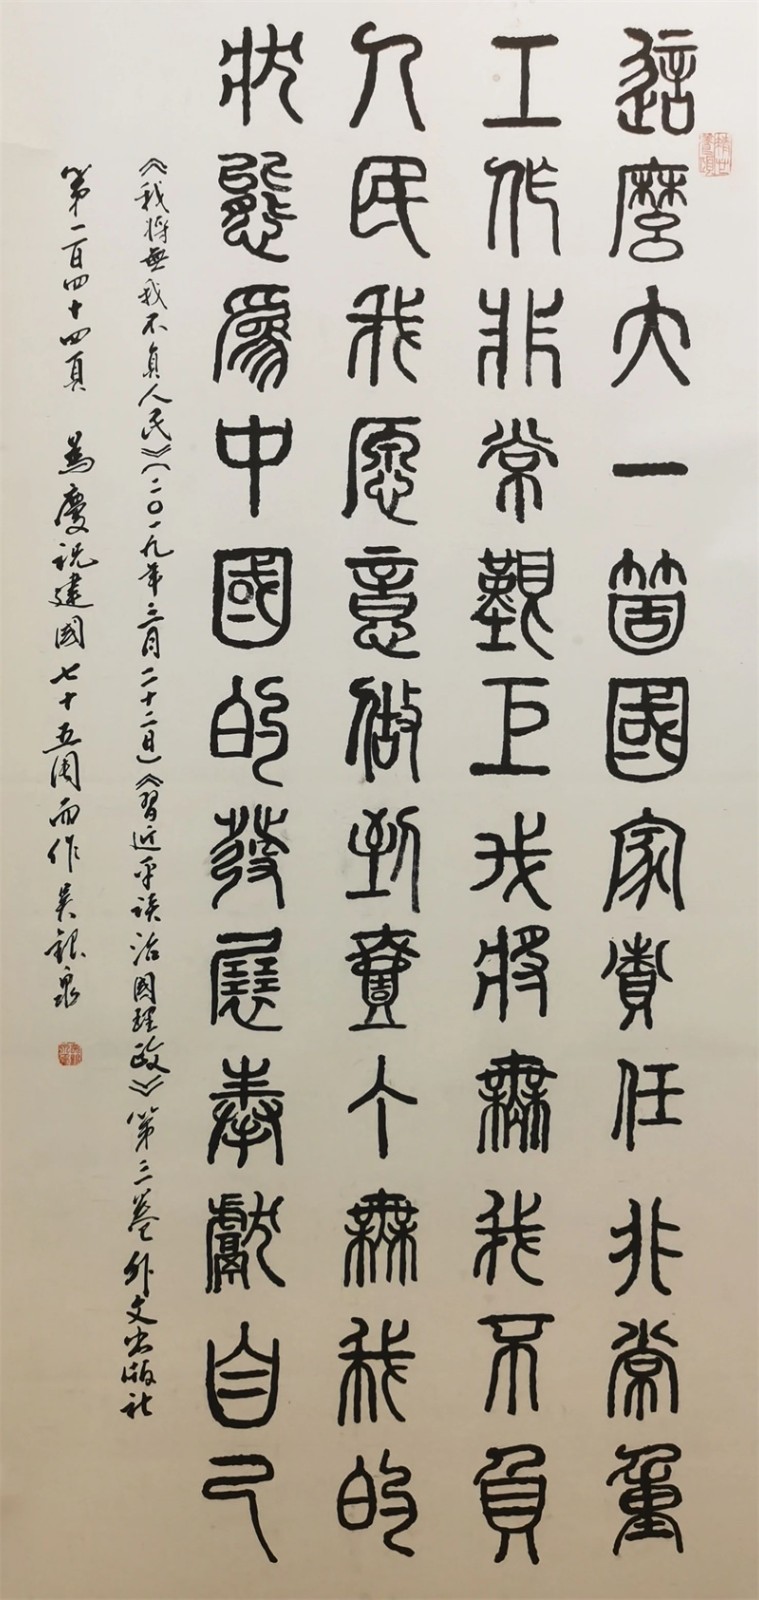 這麼大一箇國家責任非常重
工作非常艱巨我將無我不負
人民我愿意做到壹个無我的
狀態爲中國的發展奉獻自己
《我將無我不負人民》（二〇一九年三月二十二日）《習近平谈治國理政》第三卷外文出版社
第一百四十四頁 為慶祝建國七十五周而作吴銀泉